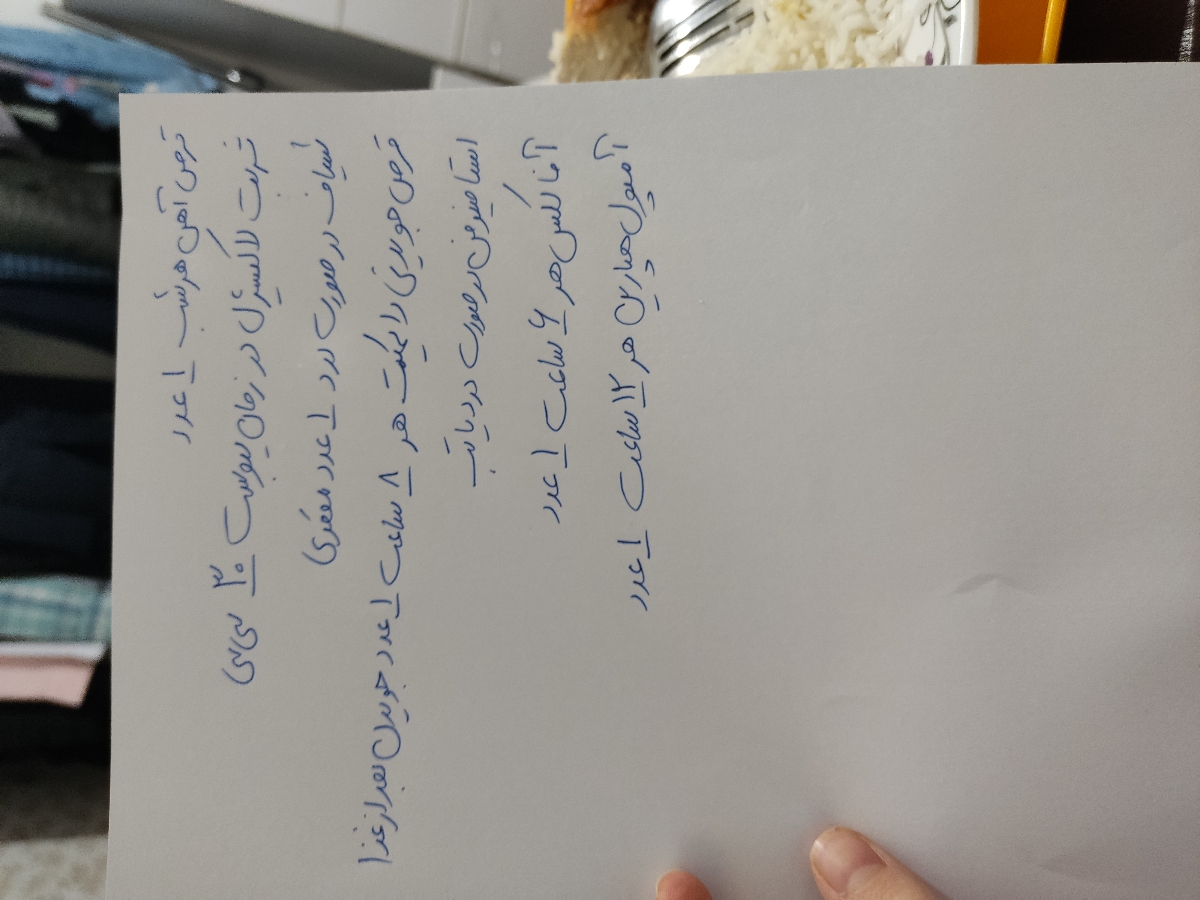 قرص آهن هر شب ۱ عدد
شربت لاکسیژل در زمان یبوست ۳۰ سی سی
شیاف در صورت درد ۱ عدد مقعدی
قرص جویدنی دایمیت هر ۸ ساعت ۱ عدد جویدن بعد از غذا
استامینوفن در صورت درد یا تب
آفالکس هر ۶ ساعت ۱ عدد
آمپول هپارین هر ۱۲ ساعت ۱ عدد